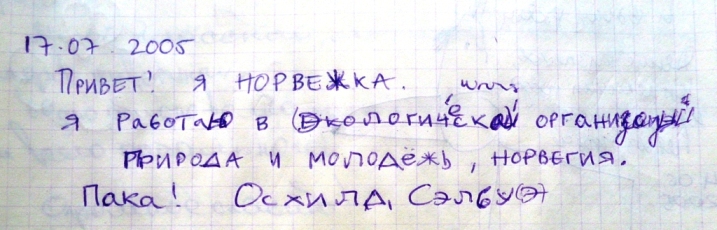 17.07.2005
Привет! Я норвежка.
Я работаю в экологической организаций
Природа и молодёжь, Норвегия.
Пака! Осхилд, Сэлбуэ